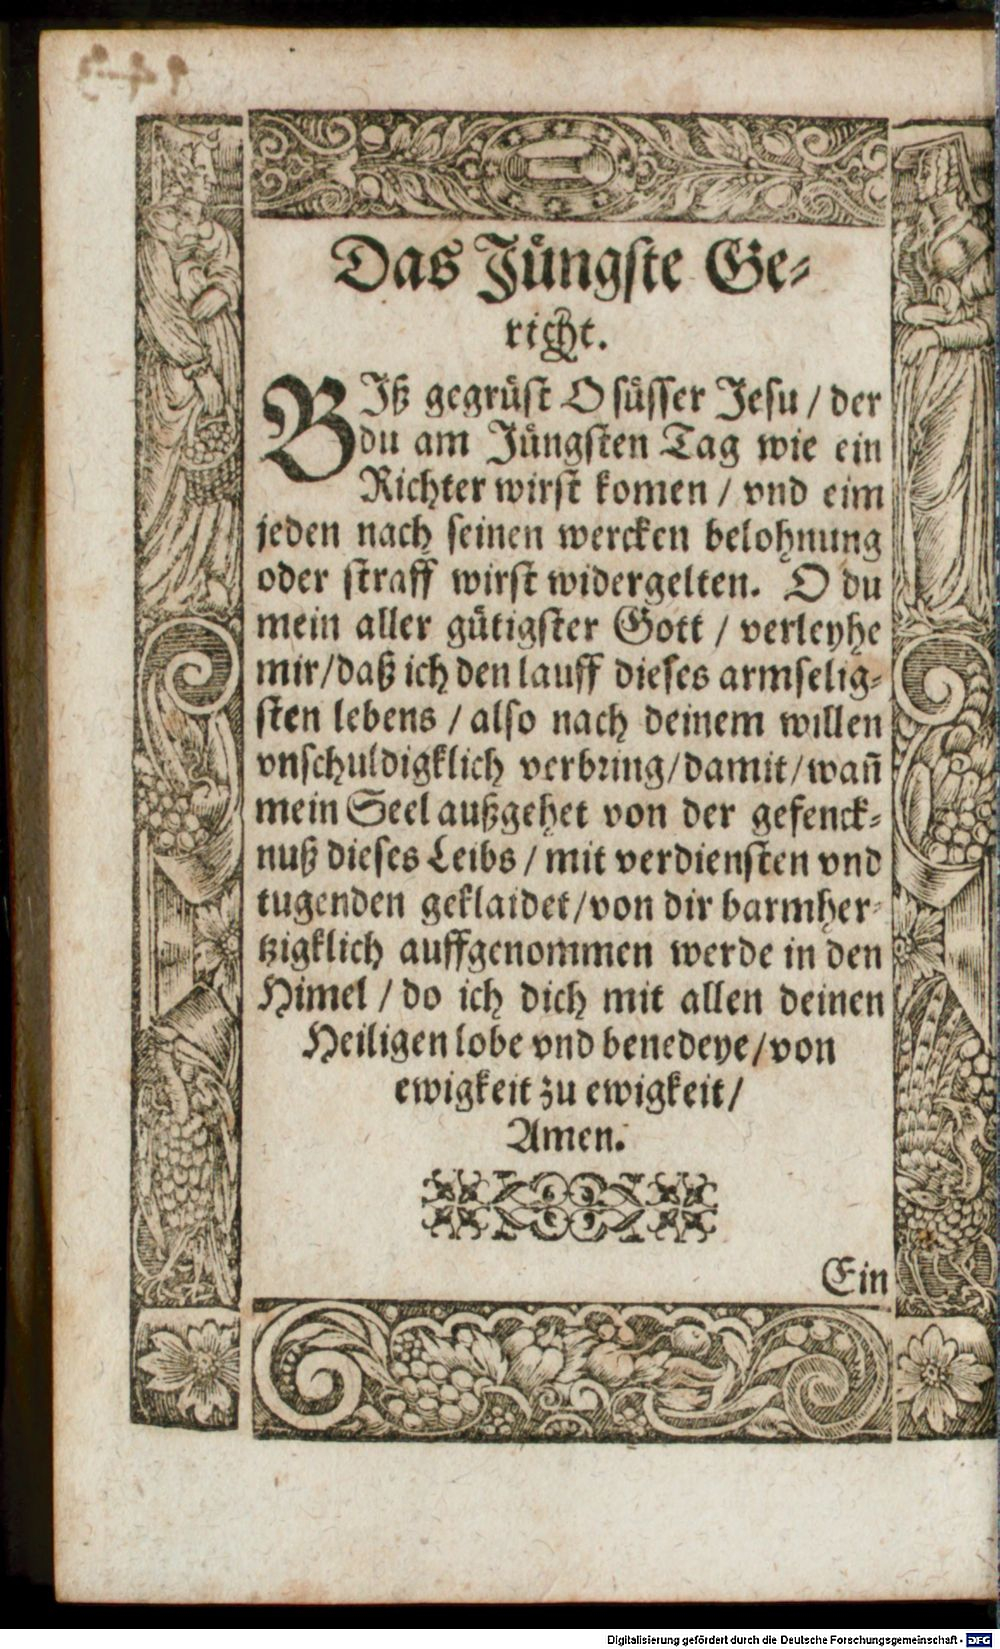 Das Jüngste Ge⸗
richt.
BJß gegrüst O süsser Jesu / der
du am Jüngsten Tag wie ein
Richter wirst komen / vnd eim
jeden nach seinen wercken belohnung
oder straff wirst widergelten. O du
mein aller gütigster Gott / verleyhe
mir/daß ich den lauff dieses armselig⸗
sten lebens / also nach deinem willen
vnschuldigklich verbring/damit/wañ
mein Seel außgehet von der gefenck⸗
nuß dieses Leibs / mit verdiensten vnd
tugenden geklaidet/von dir barmher⸗
tzigklich auffgenommen werde in den
Himel / do ich dich mit allen deinen
Heiligen lobe vnd benedeye/von
ewigkeit zu ewigkeit/
Amen.
Ein
Digitalisierung gefördert durch die Deutsche Forschungsgemeinschaft - DFG